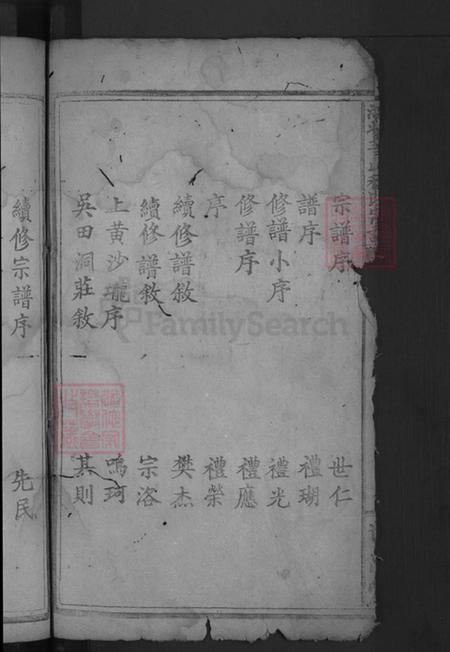 宗譜序 世仁
譜序 禮瑚
修譜小序 禮光
修譜序 禮應
序 禮榮
續修譜敘 樊杰
續修譜敘 宗洛
上黃沙瓏序 鳴珂
吳田洞莊敘 其則
續修宗譜序 先民
FamilySearch